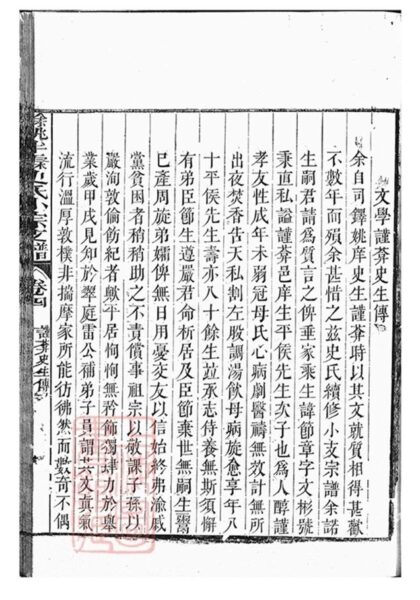 文學謹齋史生傳
余自司鐸姚庠史生謹齋時以其文就質相得甚歡
不數年而殞余甚惜之茲史氏續修小支宗譜余諾
生嗣君請爲質言之俾垂家乘生諱節章字文彬號
秉直私諡謹齋邑庠生平侯先生次子也爲人醇謹
孝友性成年未弱冠母氏心病劇醫禱無效計無所
出夜焚香告天私割左股調湯飲母病旋愈享年八
十平侯先生壽亦八十餘生並承志侍養無斯須懈
有弟臣節生遵嚴君命析居及臣節棄世無嗣生鬻
己產周旋弟孀俾無日用憂交友以信始終弗渝戚
黨貧困者稍稍助之不責償事祖宗以敬課子孫以
嚴洵敦倫飭紀者歟平居恂恂無矜飾獨肆力於舉
業歲甲戌見知於翠庭雷公補弟子員謂其文真氣
流行溫厚敦樸非揣摩家所能彷彿然而數奇不偶
小宗支譜
卷四
謹齋史生傳